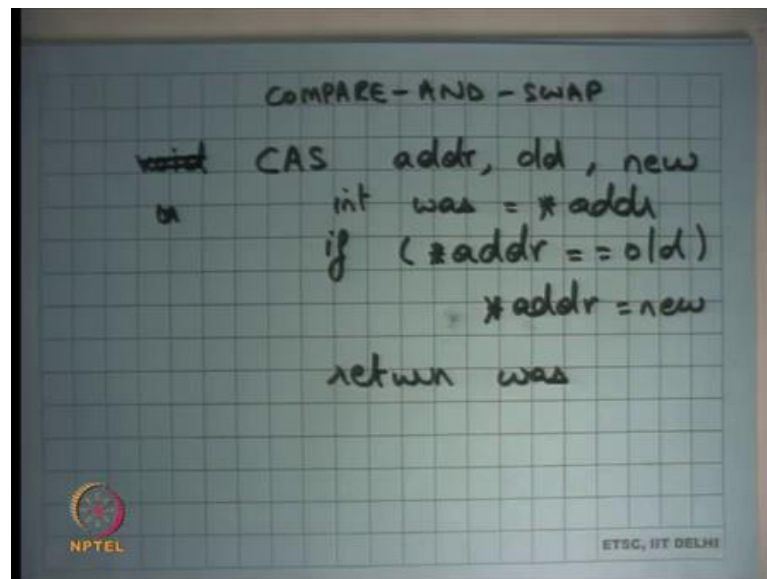 COMPARE-AND-SWAP
void CAS addr, old, new
int was = *addr
if (*addr == old)
*addr = new
return was
NPTEL
ETSC, IIT DELHI